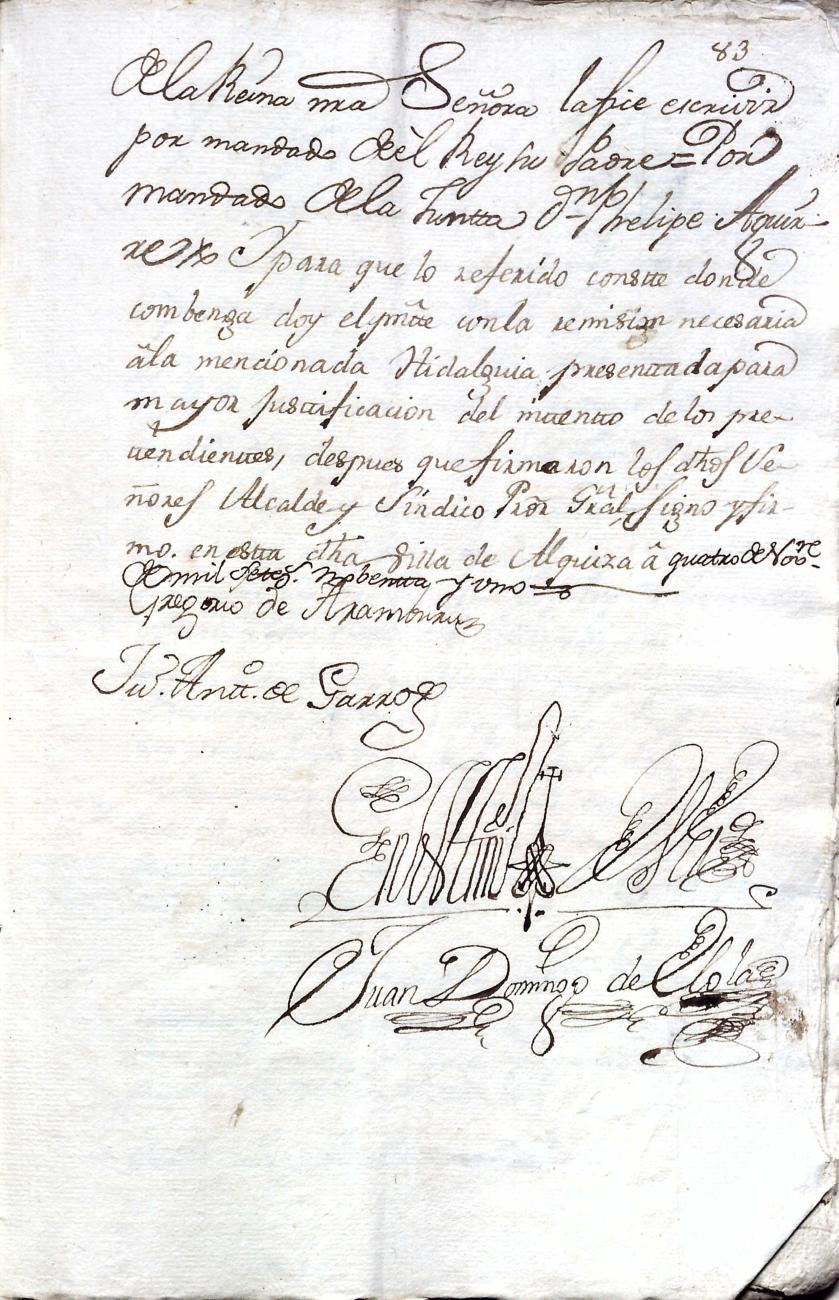 83
de la Reina nrâ Señora la fice escrivir
por mandado de èl Rey su Padre = Por
mandado de la Juntta Dn. Phelipe Aguir-
re Y para que lo referido constte donde
combenga doy el pntte con la remision necesaria
âla mencionada Hidalguia presenttada para
mayor justtificacion del inttentto de los pre-
ttendienttes, despues que firmaron los dhos Se-
ñores Alcalde y Síndico Pror Gral, signo y fir-
mo. en estta dha Villa de Alquiza â quatro de Novre
de mil setes. nobentta y uno
Gregorio de Aramburu
Ju. Antt. de Garro
En testtimo de Verd
Juan Domingo de Elola